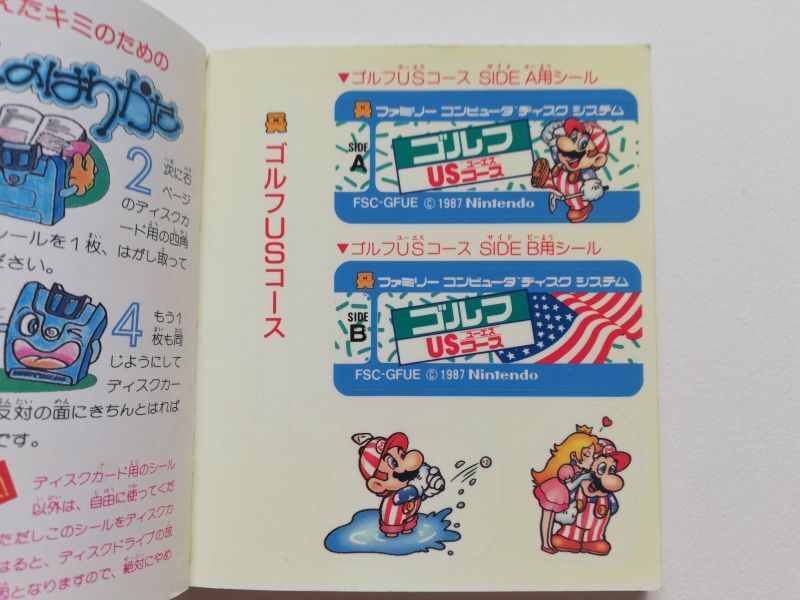 えたキミのための
のはりかた
2
次に右
ページ
のディスクカ
ード用の四角
シールを1枚、はがし取って
ださい。
4
もう1
枚も同
じようにして
ディスクカー
反対の面にきちんとはれば
です。
ディスクカード用のシール
以外は、自由に使ってくだ
ただしこのシールをディスクカ
はると、ディスクドライブの故
因となりますので、絶対にやめ
ゴルフUSコース
▼ゴルフUSコース SIDE A用シール
ファミリー コンピュータ ディスク システム
SIDE
A
ゴルフ
ユーエス
USコース
FSC-GFUE © 1987 Nintendo
▼ゴルフUSコース SIDE B用シール
ファミリー コンピュータ ディスク システム
SIDE
B
ゴルフ
ユーエス
USコース
FSC-GFUE © 1987 Nintendo